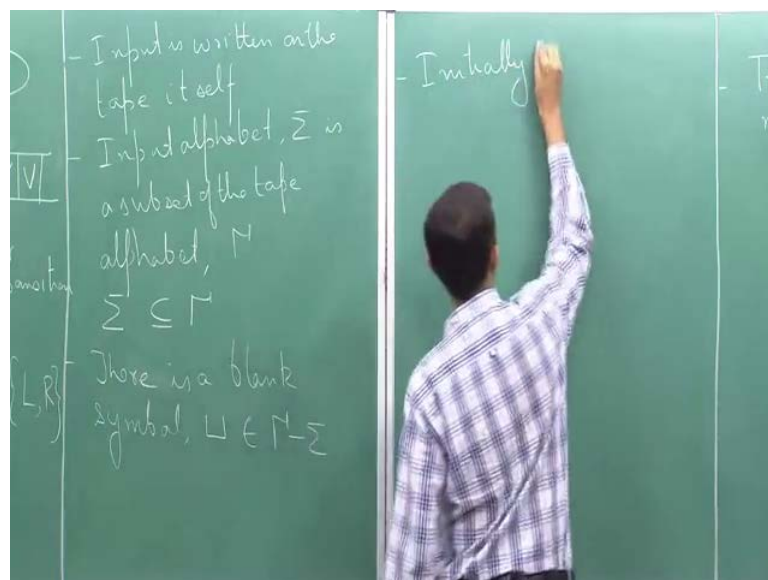 V
{L,R}
- Input is written on the
tape itself
- Input alphabet, Σ is
a subset of the tape
alphabet, Γ
Σ ⊆ Γ
- There is a blank
symbol, ⊔ ∈ Γ-Σ
- Initially
-